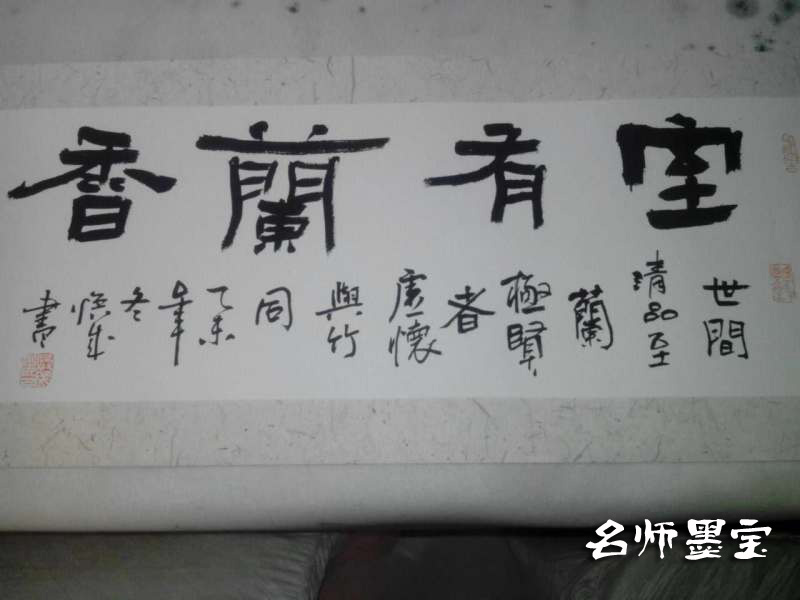 室有蘭香
世間
清品至
蘭
極賢
者
虛懷
與竹
同
乙未
年
冬
書
名师墨宝